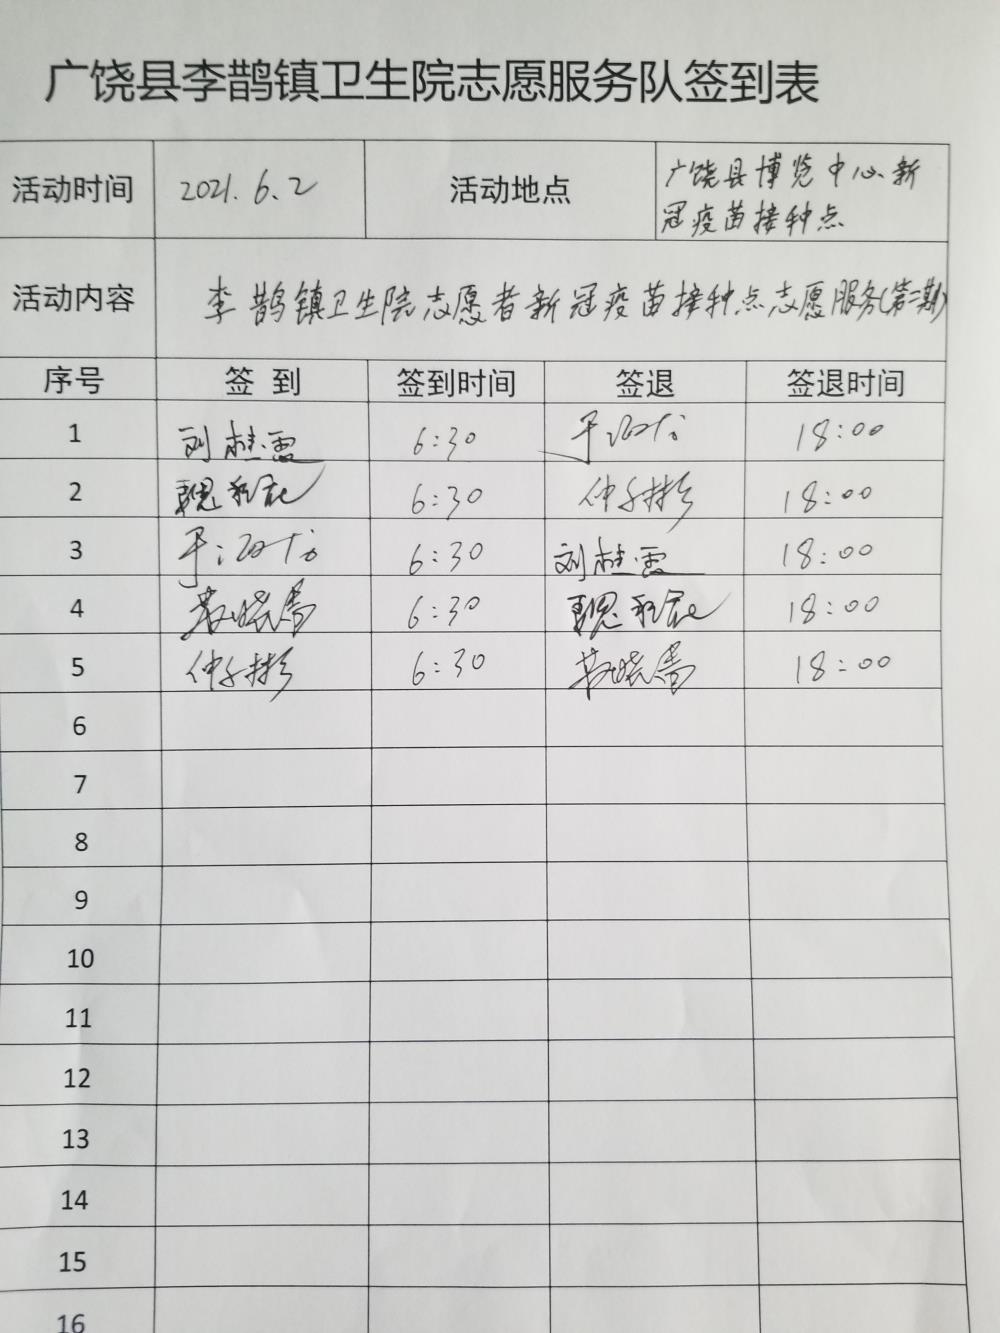 广饶县李鹊镇卫生院志愿服务队签到表
活动时间 2021.6.2 活动地点 广饶县博览中心新
冠疫苗接种点
活动内容 李鹊镇卫生院志愿者新冠疫苗接种点志愿服务(第二期)
序号 签到 签到时间 签退 签退时间
1 刘桂霞 6:30 18:00
2 6:30 18:00
3 6:30 刘桂霞 18:00
4 6:30 18:00
5 6:30 18:00
6
7
8
9
10
11
12
13
14
15
16